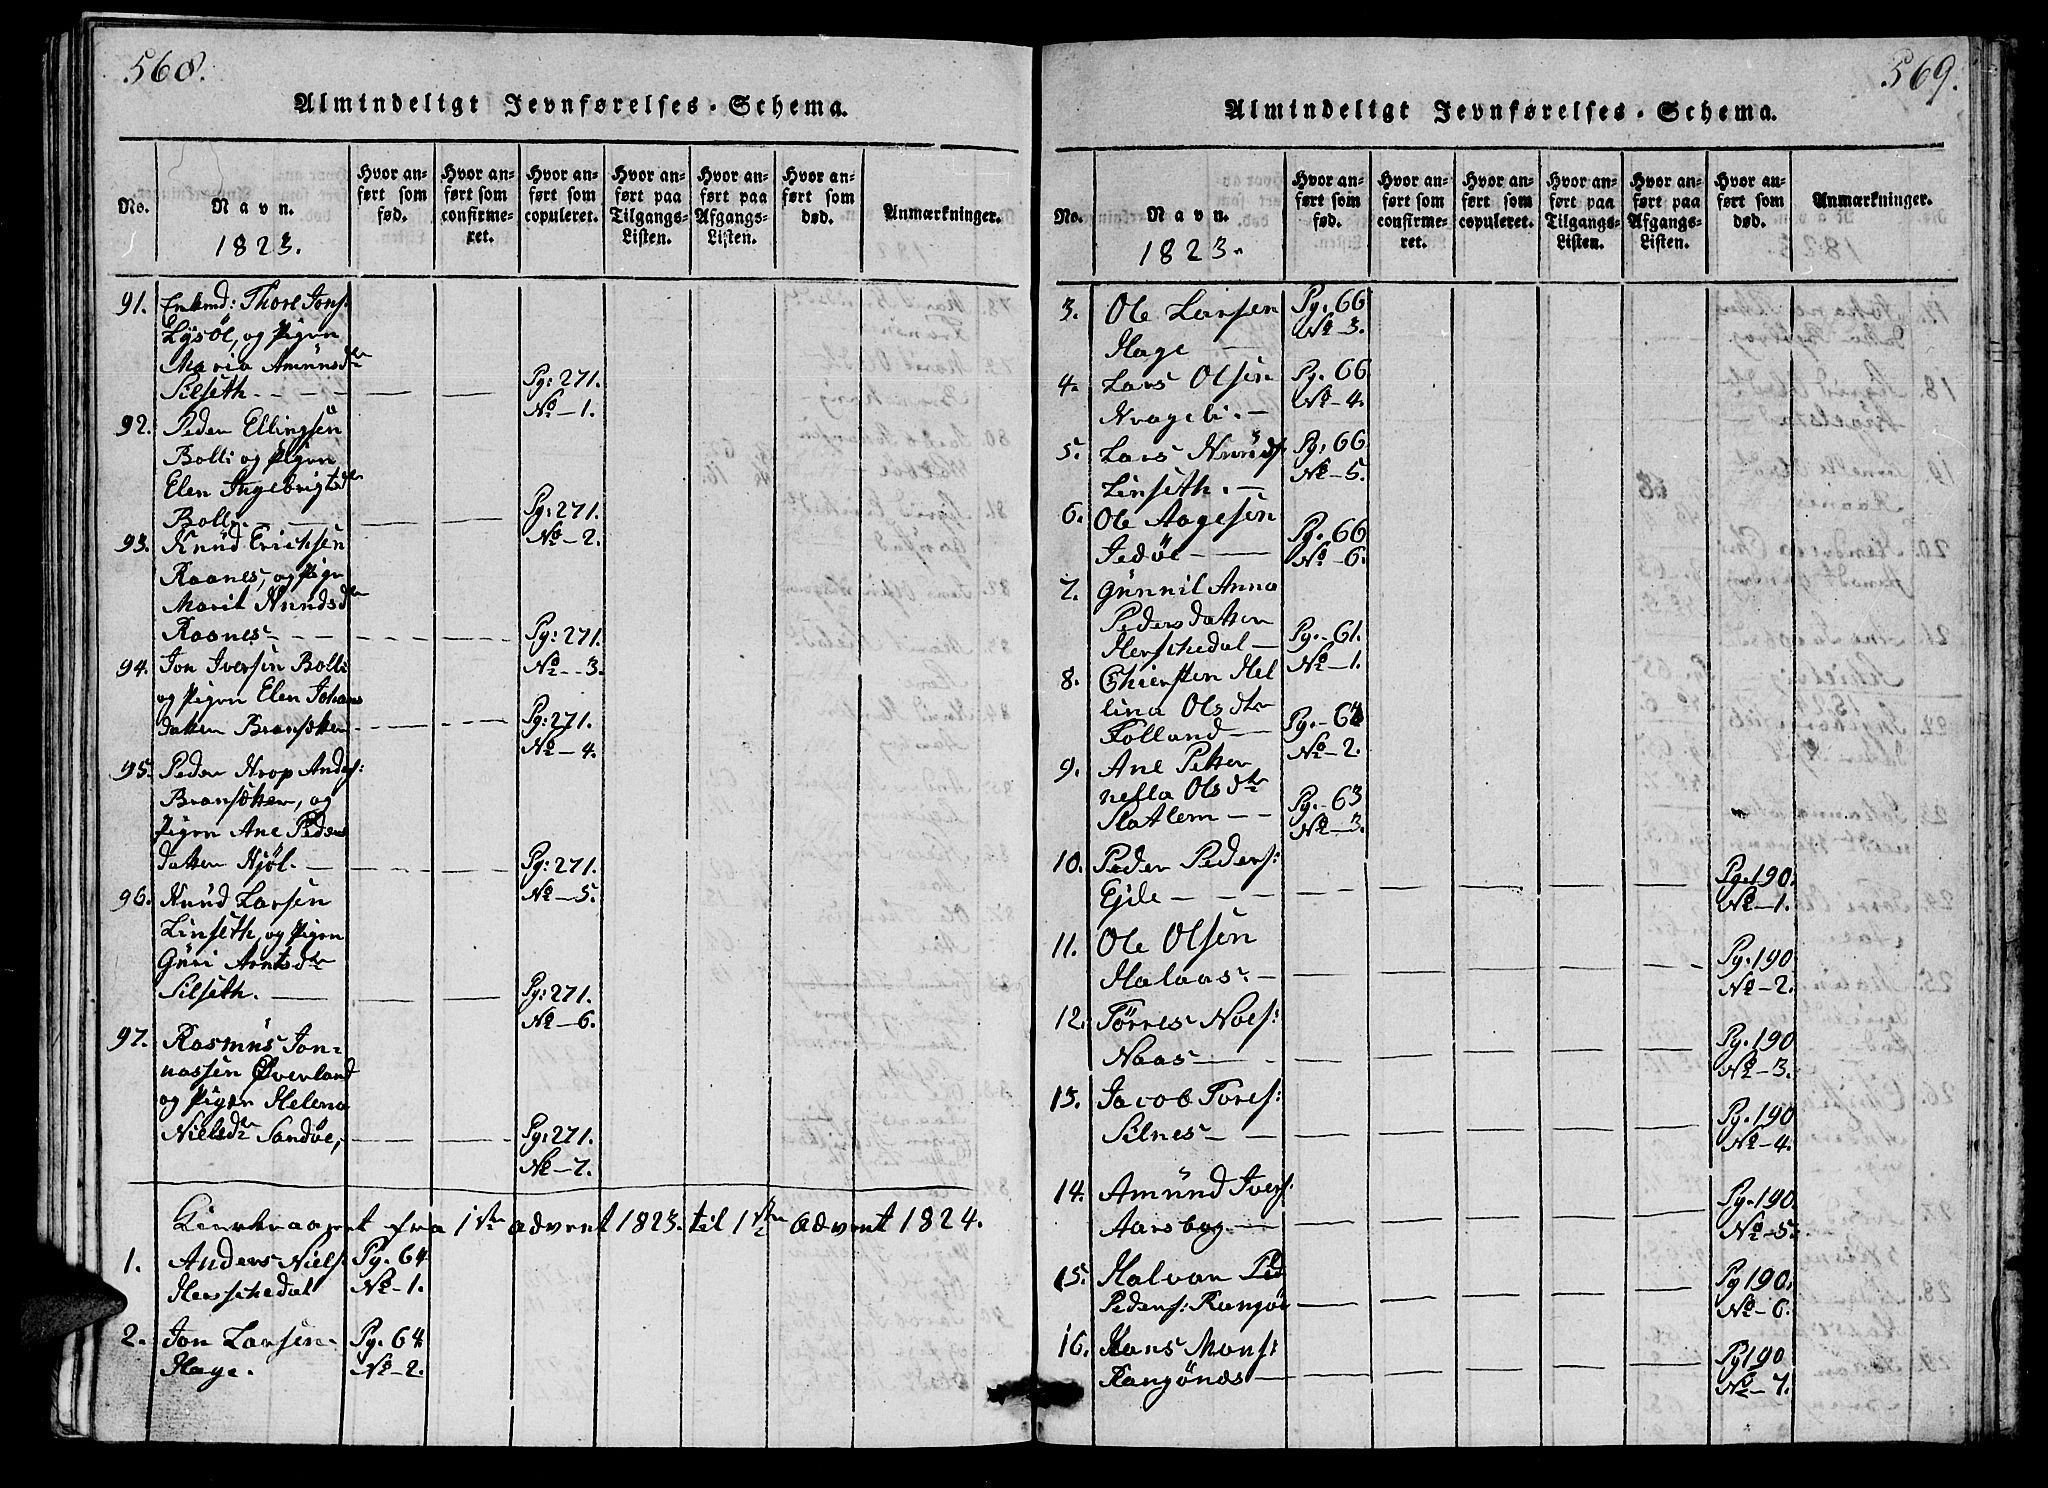 568.
Almindeligt Jevnførelses-Schema.
No.
Navn.
1823.
Hvor anført som fød.
Hvor anført som confirmeret.
Hvor anført som copuleret.
Hvor anført paa Tilgangs-Listen.
Hvor anført paa Afgangs-Listen.
Hvor anført som død.
Anmærkninger.
91. Enkmd: Thore Jons:
Lysöe, og Pigen
Maria Amundsdtr
Silseth. - - - - Pg: 271.
No - 1.
92. Peder Ellingsen
Bolli og Pigen
Elen Ingebrigtsdtr
Bolli - - - Pg: 271.
No - 2.
93. Knud Ericksen
Raanes, og Pign
Marit Knudsdtr
Raanes - - - Pg: 271.
No - 3.
94. Jon Iversen Bolli
og Pigen Elen Johans
datter Bransetter - - - Pg: 271.
No - 4.
95. Peder Krop Anders:
Bransetter, og
Pigen Ane Peders
datter Kjöl. - - - Pg: 271.
No - 5.
96. Knud Larsen
Linseth, og Pigen
Guri Arntsdtr
Silseth. - - - Pg: 271.
No - 6.
97. Rasmus Jon-
nassen Øverland
og Pigen Helena
Nielsdtr Sandöe, - - Pg: 271.
No - 7.
Kirkeaaret fra 1ste advent 1823. til 1ste Advent 1824.
1. Anders Niels: Pg. 64
Herschedal No - 1.
2. Jon Larsen - Pg. 64
Hage. No - 2.
569.
Almindeligt Jevnførelses-Schema.
No.
Navn.
1823.
Hvor anført som fød.
Hvor anført som confirmeret.
Hvor anført som copuleret.
Hvor anført paa Tilgangs-Listen.
Hvor anført paa Afgangs-Listen.
Hvor anført som død.
Anmærkninger.
3. Ole Larsen Pg. 66
Hage - No - 3.
4. Lars Olsen Pg. 66
No - 4.
5. Lars Knuds: Pg. 66
Linseth. - No - 5.
6. Ole Aagesen Pg. 66
Jedöe - No - 6.
7. Gunnil Anna
Pedersdatter Pg. - 61.
Herschedal - No - 1.
8. Chiersten Hel
lina Olsdtr Pg. - 62
Folland - No - 2.
9. Ane Petter
nella Olsdtr Pg. - 63
Slatlem - - No - 3.
10. Peder Peders: Pg. 190.
Ejde - - - No - 1.
11. Ole Olsen Pg. 190.
Halaas - - No - 2.
12. Törres Noes: Pg. 190
Naas - - No - 3.
13. Jacob Tores: Pg. 190
Silnes - - No - 4.
14. Amund Ivers: Pg. 190.
Aarsbog - - No - 5.
15. Halvar Ped Pg 190.
Peders: Rangöe - No - 6.
16. Hans Mons: Pg 190
Rangönes - No - 7.